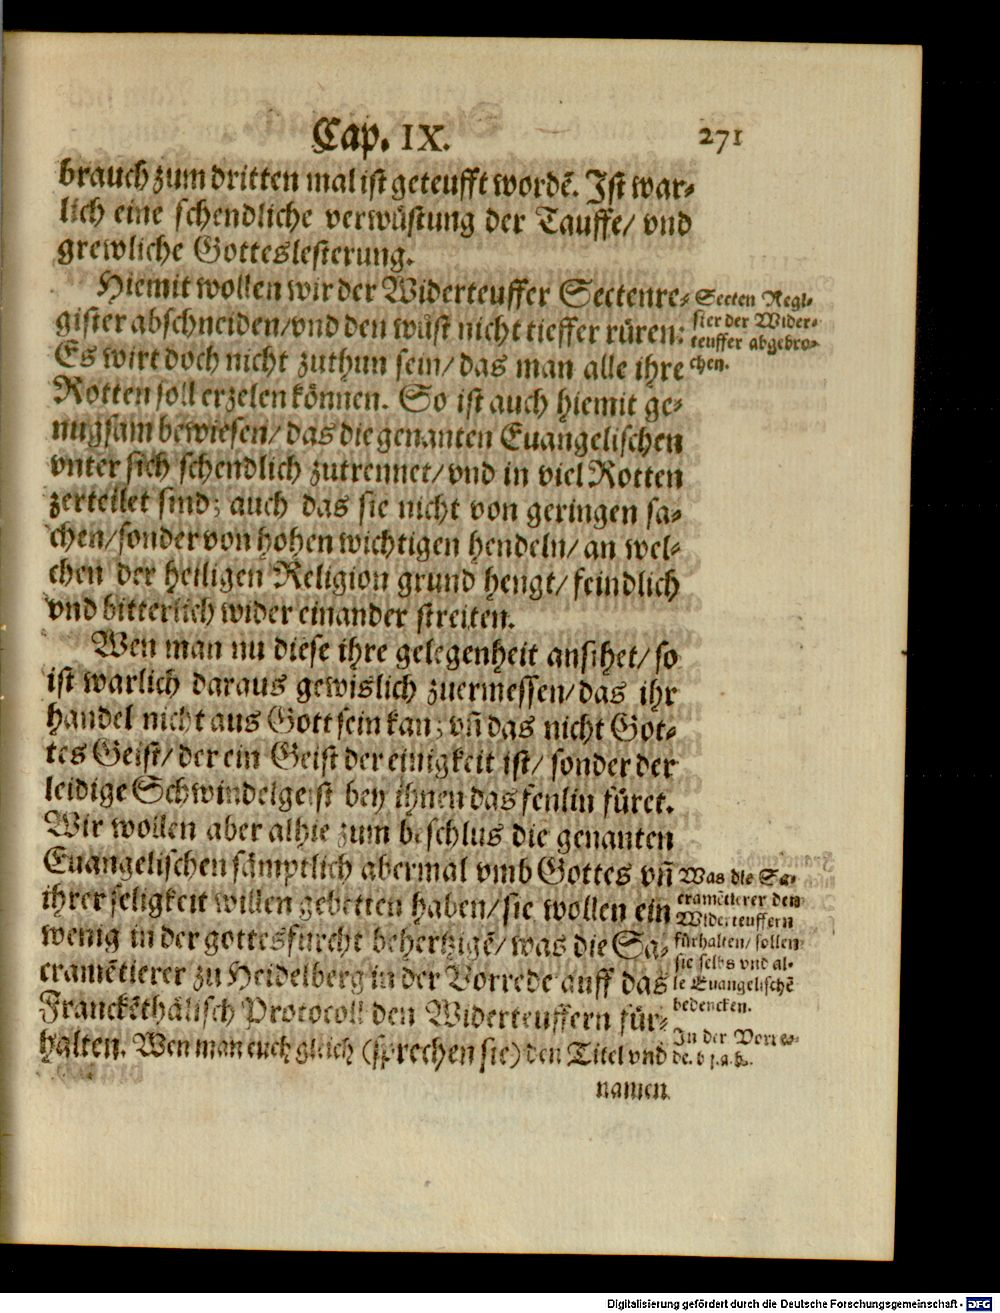 Cap. IX. 271
brauch zum dritten mal ist geteufft wordẽ. Ist war-
lich eine schendliche verwüstung der Tauffe/ vnd
grewliche Gotteslesterung.
Hiemit wollen wir der Widerteuffer Sectenre-
gister abschneiden/ vnd den wust nicht tieffer rüren:
Es wirt doch nicht zuthun sein/ das man alle ihre
Rotten soll erzelen können. So ist auch hiemit ge-
nugsam bewiesen/ das die genanten Euangelischen
vnter sich schendlich zutrennet/ vnd in viel Rotten
zerteilet sind; auch das sie nicht von geringen sa-
chen/ sonder von hohen wichtigen hendeln/ an wel-
chen der heiligen Religion grund hengt/ feindlich
vnd bitterlich wider einander streiten.
Secten Regi-
ster der Wider-
teuffer abgebro-
chen.
Wen man nu diese ihre gelegenheit ansihet/ so
ist warlich daraus gewislich zuermessen/ das ihr
handel nicht aus Gott sein kan; vñ das nicht Got-
tes Geist/ der ein Geist der einigkeit ist/ sonder der
leidige Schwindelgeist bey ihnen das fenlin füret.
Wir wollen aber alhie zum beschlus die genanten
Euangelischen sämptlich abermal vmb Gottes vñ
ihrer seligkeit willen gebetten haben/ sie wollen ein
wenig in der gottesfurcht behertzigẽ/ was die Sa-
cramẽtierer zu Heidelberg in der Vorrede auff das
Franckẽthälisch Protocoll den Widerteuffern für-
halten. Wen man euch gleich (sprechen sie) den Titel vnd
Was die Sa-
cramẽtierer den
Widerteuffern
fürhalten/ sollen
sie selbs vnd al-
le Euangelischẽ
bedencken.
In der Vorre-
de.
namen
Digitalisierung gefördert durch die Deutsche Forschungsgemeinschaft - DFG